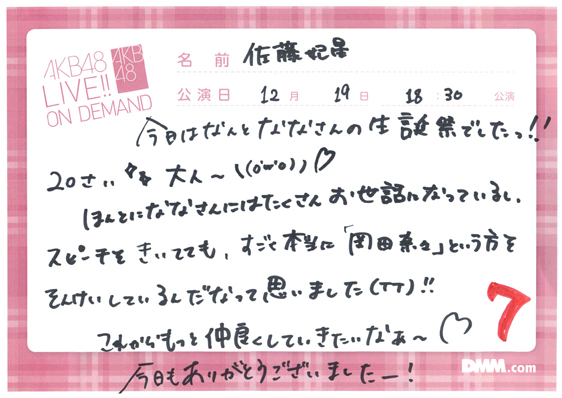 AKB48
LIVE!!
ON DEMAND
AKB
48
名前 佐藤妃星
公演日 12月 19日 18:30 公演
今日はなんとななさんの生誕祭でしたっ!!
20さい 大人〜\((o'ω'o))♡
ほんとにななさんにはたくさんお世話になっているし、
スピーチをきいてても、すごく本当に「岡田奈々」という方を
そんけいしているんだなって思いました(TT)!!
これからもっと仲良くしていきたいなぁ〜♡
今日もありがとうございましたー!
7
DMM.com